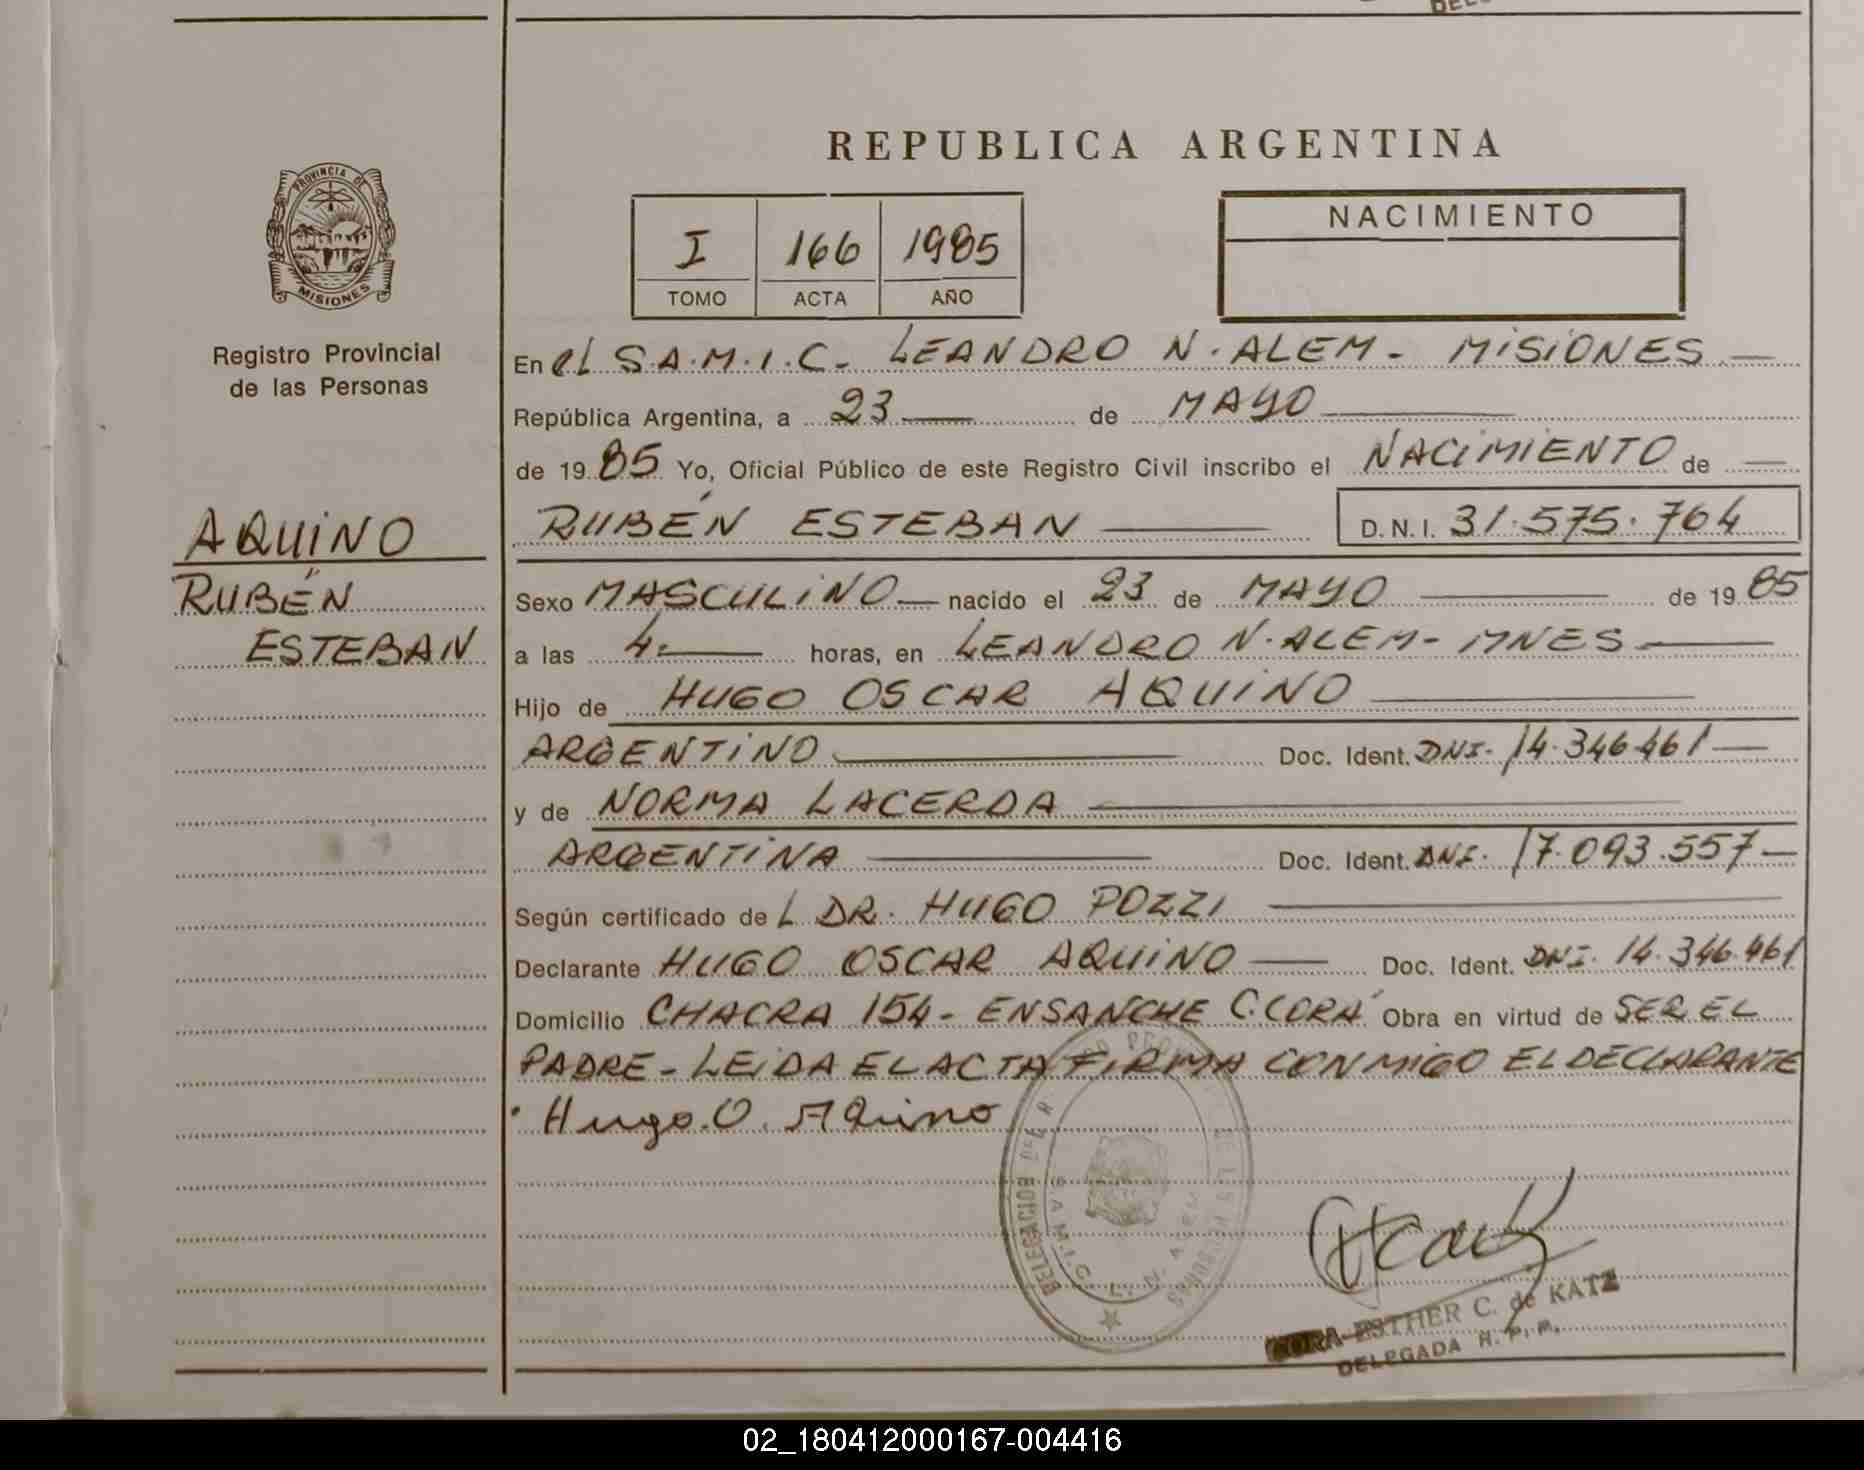 REPUBLICA ARGENTINA
PROVINCIA DE
MISIONES
Registro Provincial
de las Personas
AQUINO
RUBÉN
ESTEBAN
I 166 1985
TOMO ACTA AÑO
NACIMIENTO
En el S.A.M.I.C- LEANDRO N. ALEM - MISIONES
República Argentina, a 23 de MAYO
de 19 85 Yo, Oficial Público de este Registro Civil inscribo el NACIMIENTO de
RUBÉN ESTEBAN D.N.I. 31.575.764
Sexo MASCULINO nacido el 23 de MAYO de 19 85
a las 4. horas, en LEANDRO N. ALEM - MNES
Hijo de HUGO OSCAR AQUINO
ARGENTINO Doc. Ident. DNI. 14.346.461
y de NORMA LACERDA
ARGENTINA Doc. Ident. DNI. 17.093.557
Según certificado de L DR. HUGO POZZI
Declarante HUGO OSCAR AQUINO Doc. Ident. DNI. 14.346.461
Domicilio CHACRA 154 - ENSANCHE C.CORÁ Obra en virtud de SER EL
PADRE - LEIDA EL ACTA FIRMA CONMIGO EL DECLARANTE
Hugo. O. AQuino
DELEGACION DEL R
DE LAS PERSONAS
S.A.M.I.C. L. N. ALEM
CORA ESTHER C. de KATZ
DELEGADA R. P. P.
02_180412000167-004416